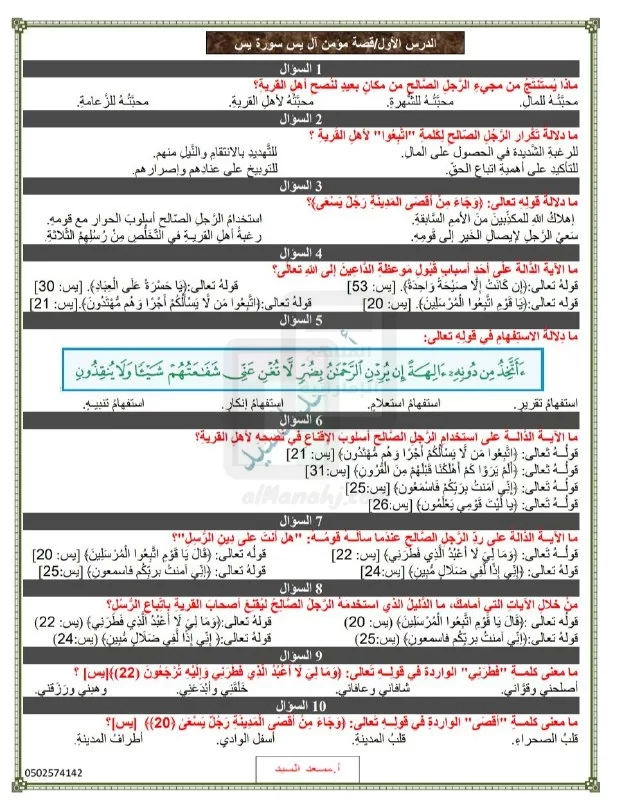 الدرس الأول/قصة مؤمن آل يس سورة يس
1 السؤال
ماذا يُستنتجُ من مجيءِ الرَّجلِ الصَّالحِ من مكانٍ بعيدٍ لنُصحِ أهلِ القريةِ؟
محبَّتُهُ للمالِ. محبَّتُهُ للشُّهرةِ. محبَّتُهُ لأهلِ القريةِ. محبَّتُهُ للزَّعامةِ.
2 السؤال
ما دلالةُ تكرارِ الرَّجُلِ الصالحِ لكلمةِ "اتَّبِعُوا" لأهلِ القريةِ ؟
للرغبةِ الشَّديدة في الحصول على المالِ. للتَّهديدِ بالانتقامِ والنَّيلِ منهم.
للتأكيدِ على أهميةِ اتباعِ الحقّ. للتوبيخِ على عنادِهم وإصرارهم.
3 السؤال
ما دلالةُ قولِهِ تعالى: ﴿وَجَاءَ مِنْ أَقْصَى المَدِينَةِ رَجُلٌ يَسْعَى﴾؟
إهلاكُ اللهِ للمكذِّبينَ منَ الأممِ السَّابقةِ. استخدامُ الرَّجلِ الصّالحِ أسلوبَ الحوارِ مع قومِهِ.
سعيُ الرَّجلِ لإيصالِ الخيرِ إلى قومِهِ. رغبةُ أهلِ القريةِ في التَّخلُّصِ مِنْ رُسلِهِمُ الثَّلاثةِ.
4 السؤال
ما الآيةُ الدَّالةُ على أحدِ أسبابِ قبُولِ مَوعظةِ الدَّاعينَ إلى اللهِ تعالى؟
قولهُ تعالى:﴿إِن كَانَتْ إِلَّا صَيْحَةً وَاحِدَةً﴾. [يس: 53] قولهُ تعالى:﴿يَا حَسْرَةً عَلَى الْعِبَادِ﴾. [يس: 30]
قولهُ تعالى:﴿يَا قَوْمِ اتَّبِعُوا الْمُرْسَلِينَ﴾. [يس: 20] قولهُ تعالى:﴿اتَّبِعُوا مَن لَّا يَسْأَلُكُمْ أَجْرًا وَهُم مُّهْتَدُونَ﴾.[يس: 21]
5 السؤال
ما دِلالةُ الاستفهامِ في قولِهِ تعالى:
ءَأَتَّخِذُ مِن دُونِهِۦٓ ءَالِهَةً إِن يُرِدْنِ ٱلرَّحْمَٰنُ بِضُرٍّ لَّا تُغْنِ عَنِّى شَفَٰعَتُهُمْ شَيْـًٔا وَلَا يُنقِذُونِ
استفهامُ تقريرٍ. استفهامُ استعلامٍ. استفهامُ إنكارٍ. استفهامُ تنبيهٍ.
6 السؤال
ما الآيـةُ الدَّالـةُ على استخدامِ الرَّجلِ الصَّالحِ أسلوبَ الإقناعِ في نُصحِهِ لأهلِ القريةِ؟
قولُـهُ تَعالى: ﴿اتَّبِعُوا مَن لَّا يَسْأَلُكُمْ أَجْرًا وَهُم مُّهْتَدُونَ﴾ [يس: 21]
قولُـهُ تَعالى: ﴿أَلَمْ يَرَوْا كَمْ أَهْلَكْنَا قَبْلَهُم مِّنَ الْقُرُونِ﴾ [يس:31]
قولُـهُ تَعالى: ﴿إِنِّي آمَنتُ بِرَبِّكُمْ فَاسْمَعُونِ﴾ [يس:25]
قولُـهُ تَعالى: ﴿يَا لَيْتَ قَوْمِي يَعْلَمُونَ﴾ [يس:26]
7 السؤال
ما الآيةُ الدَّالةُ على ردِّ الرَّجلِ الصَّالحِ عندَما سألَـهُ قومُـهُ: "هل أنتَ على دِينِ الرُّسلِ"؟
قولُـهُ تَعالى: ﴿وَمَا لِيَ لَا أَعْبُدُ الَّذِي فَطَرَنِي﴾ [يس: 22] قولُه تعالى: ﴿قَالَ يَا قَوْمِ اتَّبِعُوا الْمُرْسَلِينَ﴾ [يس: 20]
قولُـهُ تَعالى: ﴿إِنِّي إِذًا لَّفِي ضَلَالٍ مُّبِينٍ﴾ [يس:24] قولهُ تعالى: ﴿إنِّي آمنتُ بربِّكُم فاسمعونِ﴾ [يس:25]
8 السؤال
منْ خلالِ الآياتِ التي أمامكَ، ما الدَّليلُ الذي استخدمَهُ الرَّجُلُ الصَّالحُ ليُقنعَ أصحابَ القريةِ باتِّباعِ الرُّسُلِ؟
قولهُ تعالى:﴿قَالَ يَا قَوْمِ اتَّبِعُوا الْمُرْسَلِينَ﴾ (يس: 20) قولهُ تعالى:﴿وَمَا لِيَ لَا أَعْبُدُ الَّذِي فَطَرَنِي﴾ (يس: 22)
قولهُ تعالى:﴿إنِّي آمنتُ بربِّكُم فاسمعونِ﴾ (يس:25) قولهُ تعالى:﴿ إِنِّي إِذًا لَّفِي ضَلَالٍ مُّبِينٍ﴾ (يس:24)
9 السؤال
ما معنى كلمـةِ "فطرَنِي" الواردةِ في قولـهِ تعالى: ﴿وَمَا لِيَ لَا أَعْبُدُ الَّذِي فَطَرَنِي وَإِلَيْهِ تُرْجَعُونَ (22)﴾[يس] ؟
أصلحني وقوَّاني. شافاني وعافاني. خَلَقَنِي وأبْدَعَنِي. وهبني ورَزَقَني.
10 السؤال
ما معنى كلمـةِ "أقصَى" الواردةِ في قولـهِ تعالى: ﴿وَجَاءَ مِنْ أَقْصَى الْمَدِينَةِ رَجُلٌ يَسْعَىٰ (20)﴾ [يس]؟
قلبُ الصحراءِ. قلبُ المدينةِ. أسفل الوادي. أطرافُ المدينةِ.
أ.مسعد السيد
0502574142
almanahj